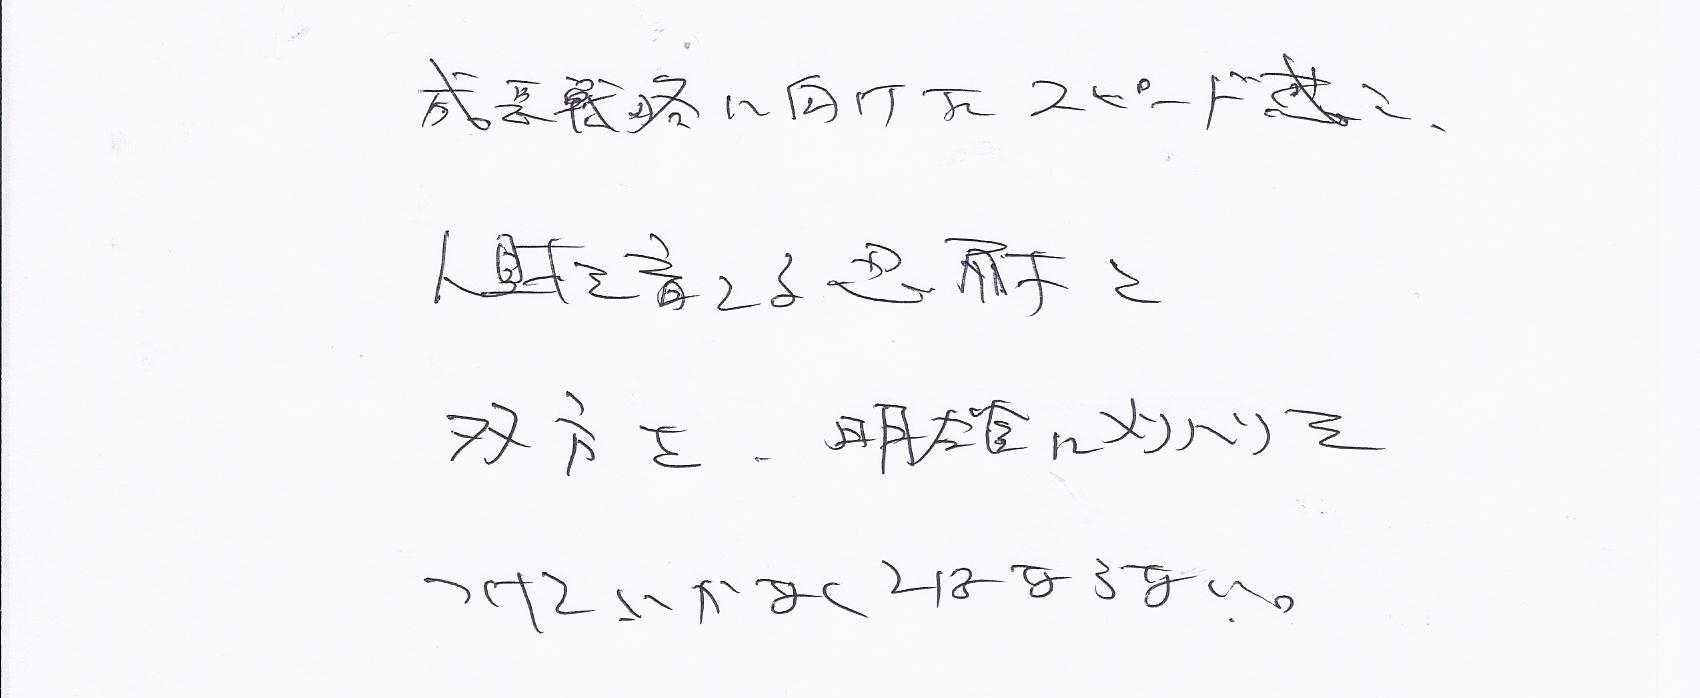 成長戦略に向けたスピード感と、
人財を育てる忍耐と
双方を、明確にメリハリを
つけていかなくてはならない。